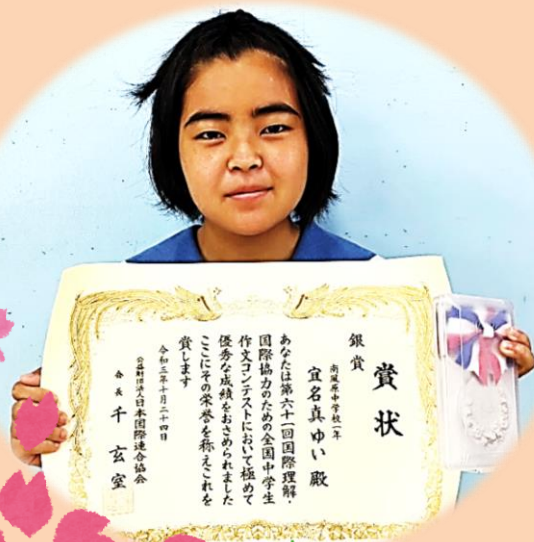 賞状
銀賞
南風原中学校一年
宜名真ゆい殿
あなたは第六十一回国際理解・
国際協力のための全国中学生
作文コンテストにおいて極めて
優秀な成績をおさめられました
ここにその栄誉を称えこれを
賞します
令和三年十月二十四日
公益財団法人日本国際連合協会
会長 千玄室